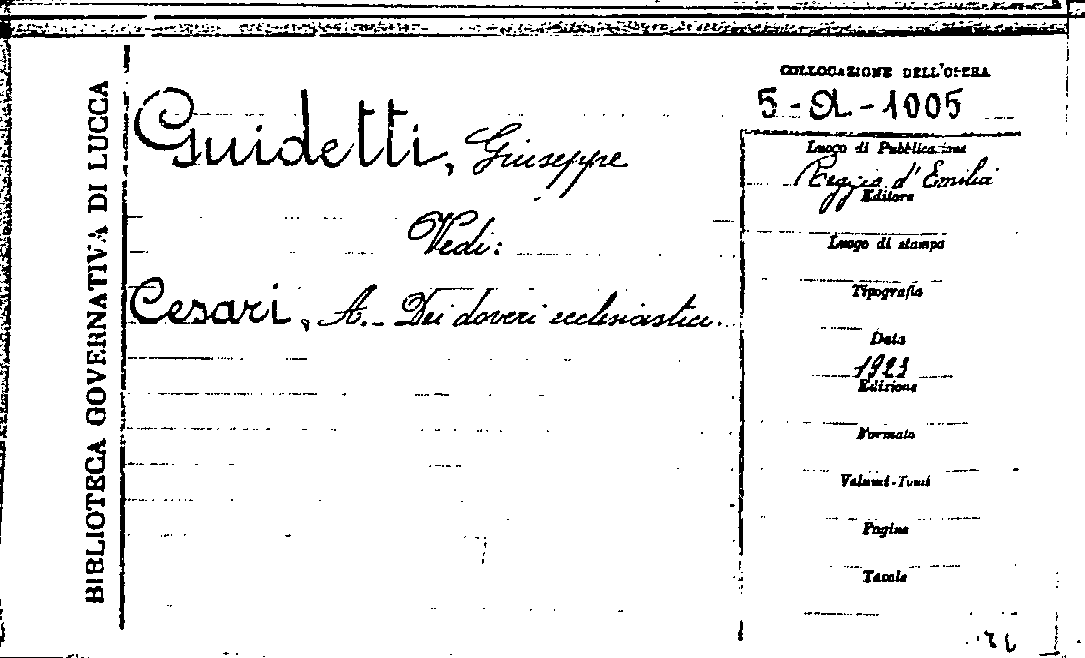 BIBLIOTECA GOVERNATIVA DI LUCCA
Guidetti, Giuseppe
Vedi:
Cesari, A. - Dei doveri ecclesiastici.
COLLOCAZIONE DELL'OPERA
5-A-1005
Luogo di Pubblicazione
Reggio d'Emilia
Editore
Luogo di stampa
Tipografia
Data
1923
Edizione
Formato
Volumi-Tomi
Pagine
Tavole